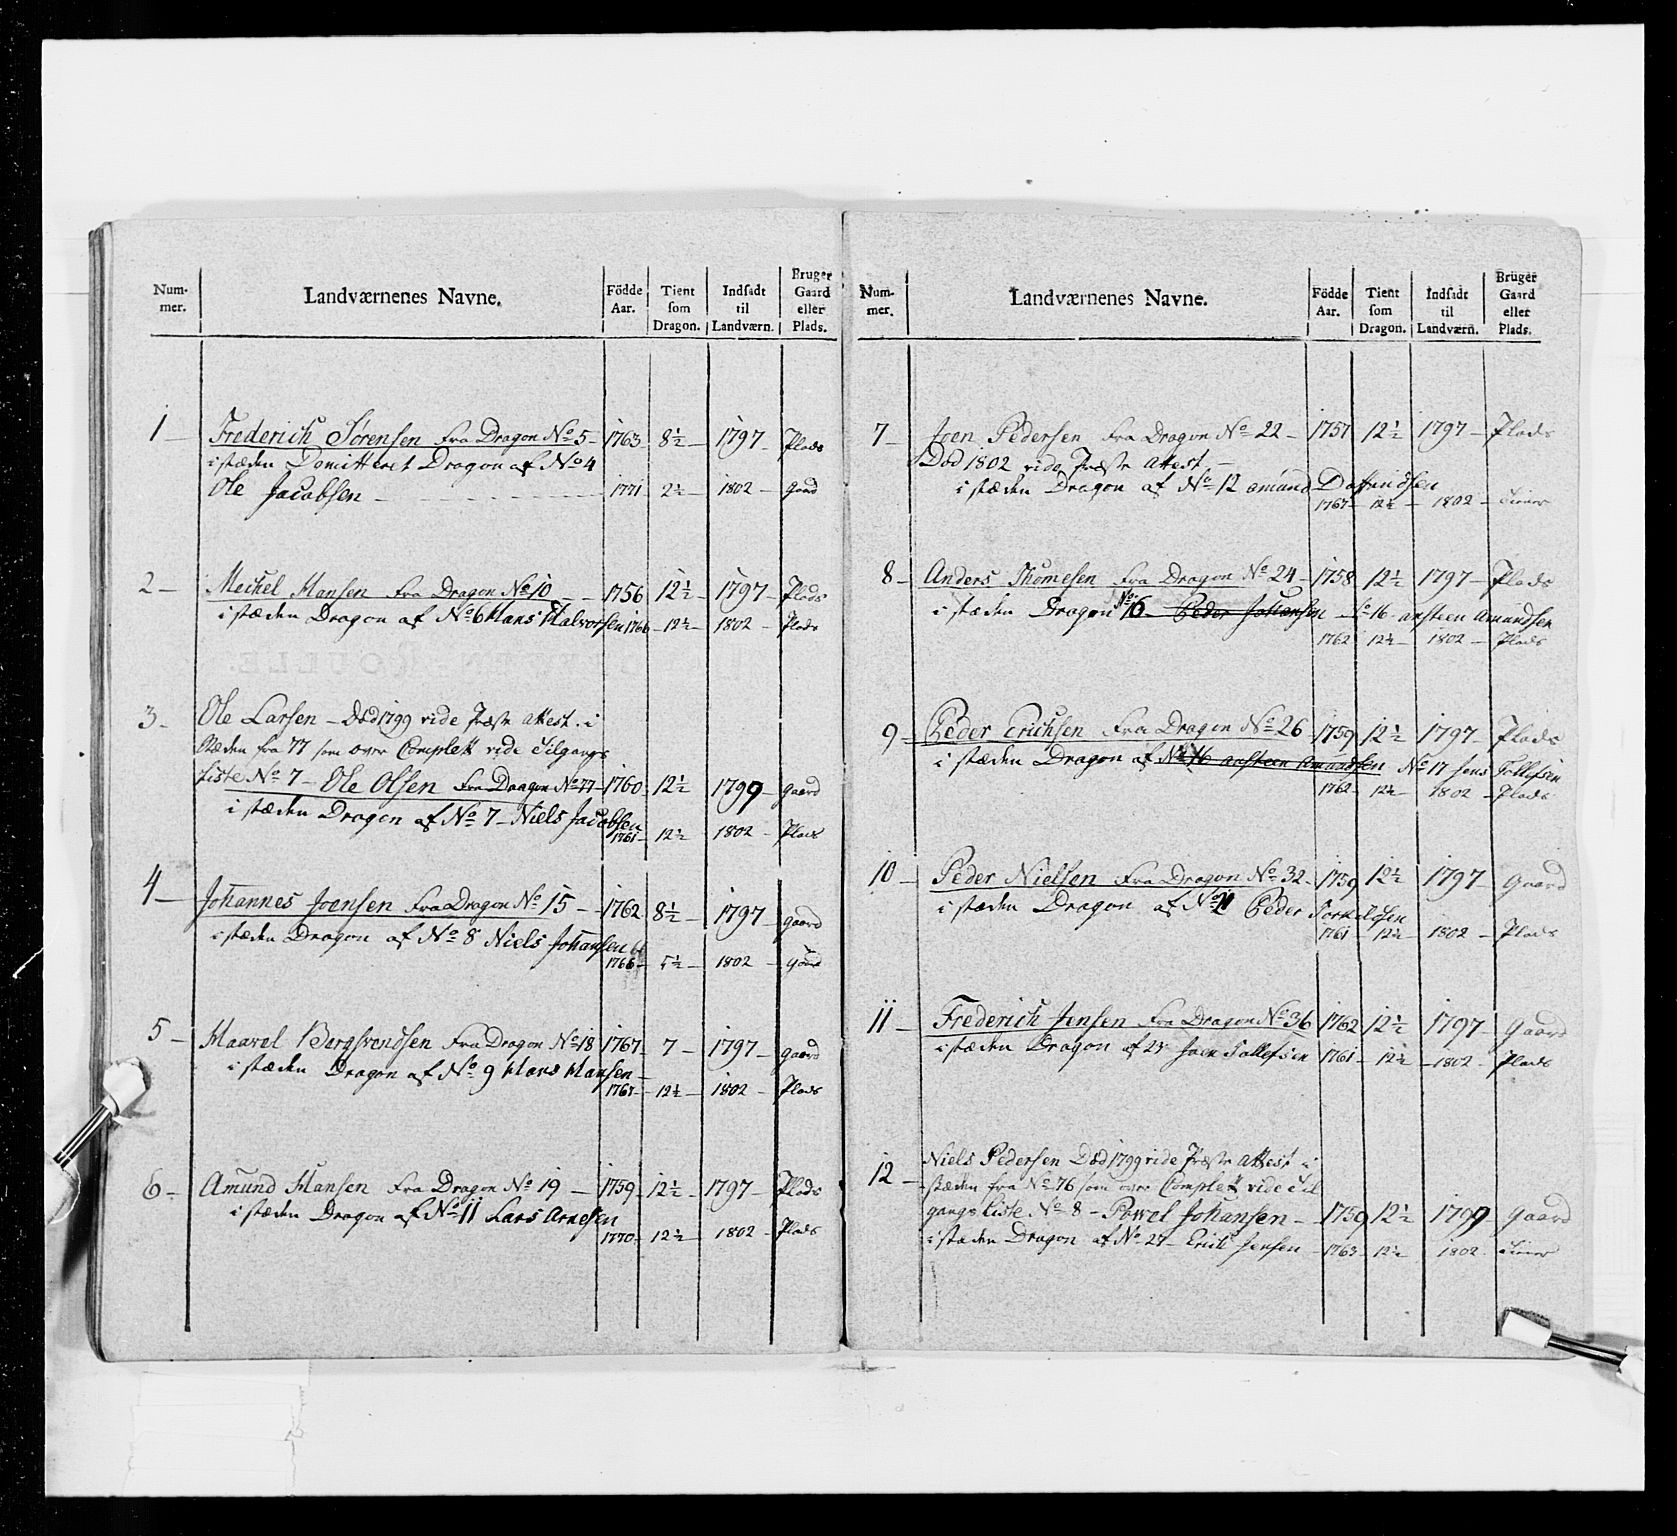 Num-
mer.
Landværnenes Navne.
Födde
Aar.
Tient
som
Dragon.
Indsadt
til
Landværn.
Bruger
Gaard
eller
Plads.
1 Frederich Sørensen fra Dragon No 5 - 1763 - 8½ - 1797 - Plads
i stæden Domitteret Dragon af No 4
Ole Jacobsen - 1771 2½ - 1802 - Gaad
2 - Mechel Hansen fra Dragon No 10 - - 1756 12½ - 1797 - Plads
i stæden Dragon af No 6 Hans Halvorsen 1766 - 12½ - 1802 - Plads
3 - Ole Larsen - Død 1799 vide Præste Attest. i
Stæden fra 77 som over Complett vide Tilgangs
Liste No 7 - Ole Olsen fra Dragon No 77 - 1760 - 12½ 1799 - Gaard
i stæden Dragon af No 7 - Niels Jacobsen
1761 - 12½ 1802 - Plads
4 - Johannes Joensen fra Dragon No 15 - 1762 8½ - 1797 Gaard
i stæden Dragon af No 8 Niels Johansen
1766 - 5½ - 1802 - Gaad
5 - Haavel Bergsvendsen fra Dragon No 18 1767 - 7 - 1797 - Gaard
i stæden Dragon af No 9 Hans Hansen -
1767 - 12½ - 1802 - Plads
6 - Amund Hansen fra Dragon No 19 - 1759 - 12½ - 1797 - Plads
i stæden Dragon af No 11 Lars Arnesen
1770 - 12½ - 1802 - Plads
Num-
mer.
Landværnenes Navne.
Födde
Aar.
Tient
som
Dragon.
Indsadt
til
Landværn.
Brüger
Gaard
eller
Plads.
7 - Joen Pedersen fra Dragon No 22 - 1757 12½ - 1797 - Plads
Død 1802 vide Præste Attest -
i stæden Dragon af No 12 Amund
1767 - 12½ - 1802 -
8 - Anders Thomesen fra Dragon No 24 - 1758 12½ 1797 - Plads
i stæden Dragon No 6 - Peder Johansen No 16 - Ansteen Amundsen
1762 12½ - 1802 - Plads
9 - Peder Erichsen fra Dragon No 26 1759 12½ - 1797 - Plads
i stæden Dragon af No 16 Ansteen Amundsen No 17 Jens Tollefsen
1762 - 12½ - 1802 - Plads
10 - Peder Nielsen fra Dragon No 32 - 1759 12½ - 1797 - Gaard
i stæden Dragon af No Peder Torkildsen
1761 - 12½ - 1802 - Plads
11 - Frederich Jensen fra Dragon No 36 1762 12½ - 1797 - Gaard
i stæden Dragon af Joen Tollefsen 1761 - 12½ - 1802 - Plads
12 - Niels Pedersen Død 1799 vide Præste Attest i
stæden fra No 76 som over Complett vide Til
gangs Liste No 8 - Powel Johansen - 1759 12½ - 1799 Gaard
i stæden Dragon af No 27 - Erich Jensen - 1763 - 12½ 1802 -